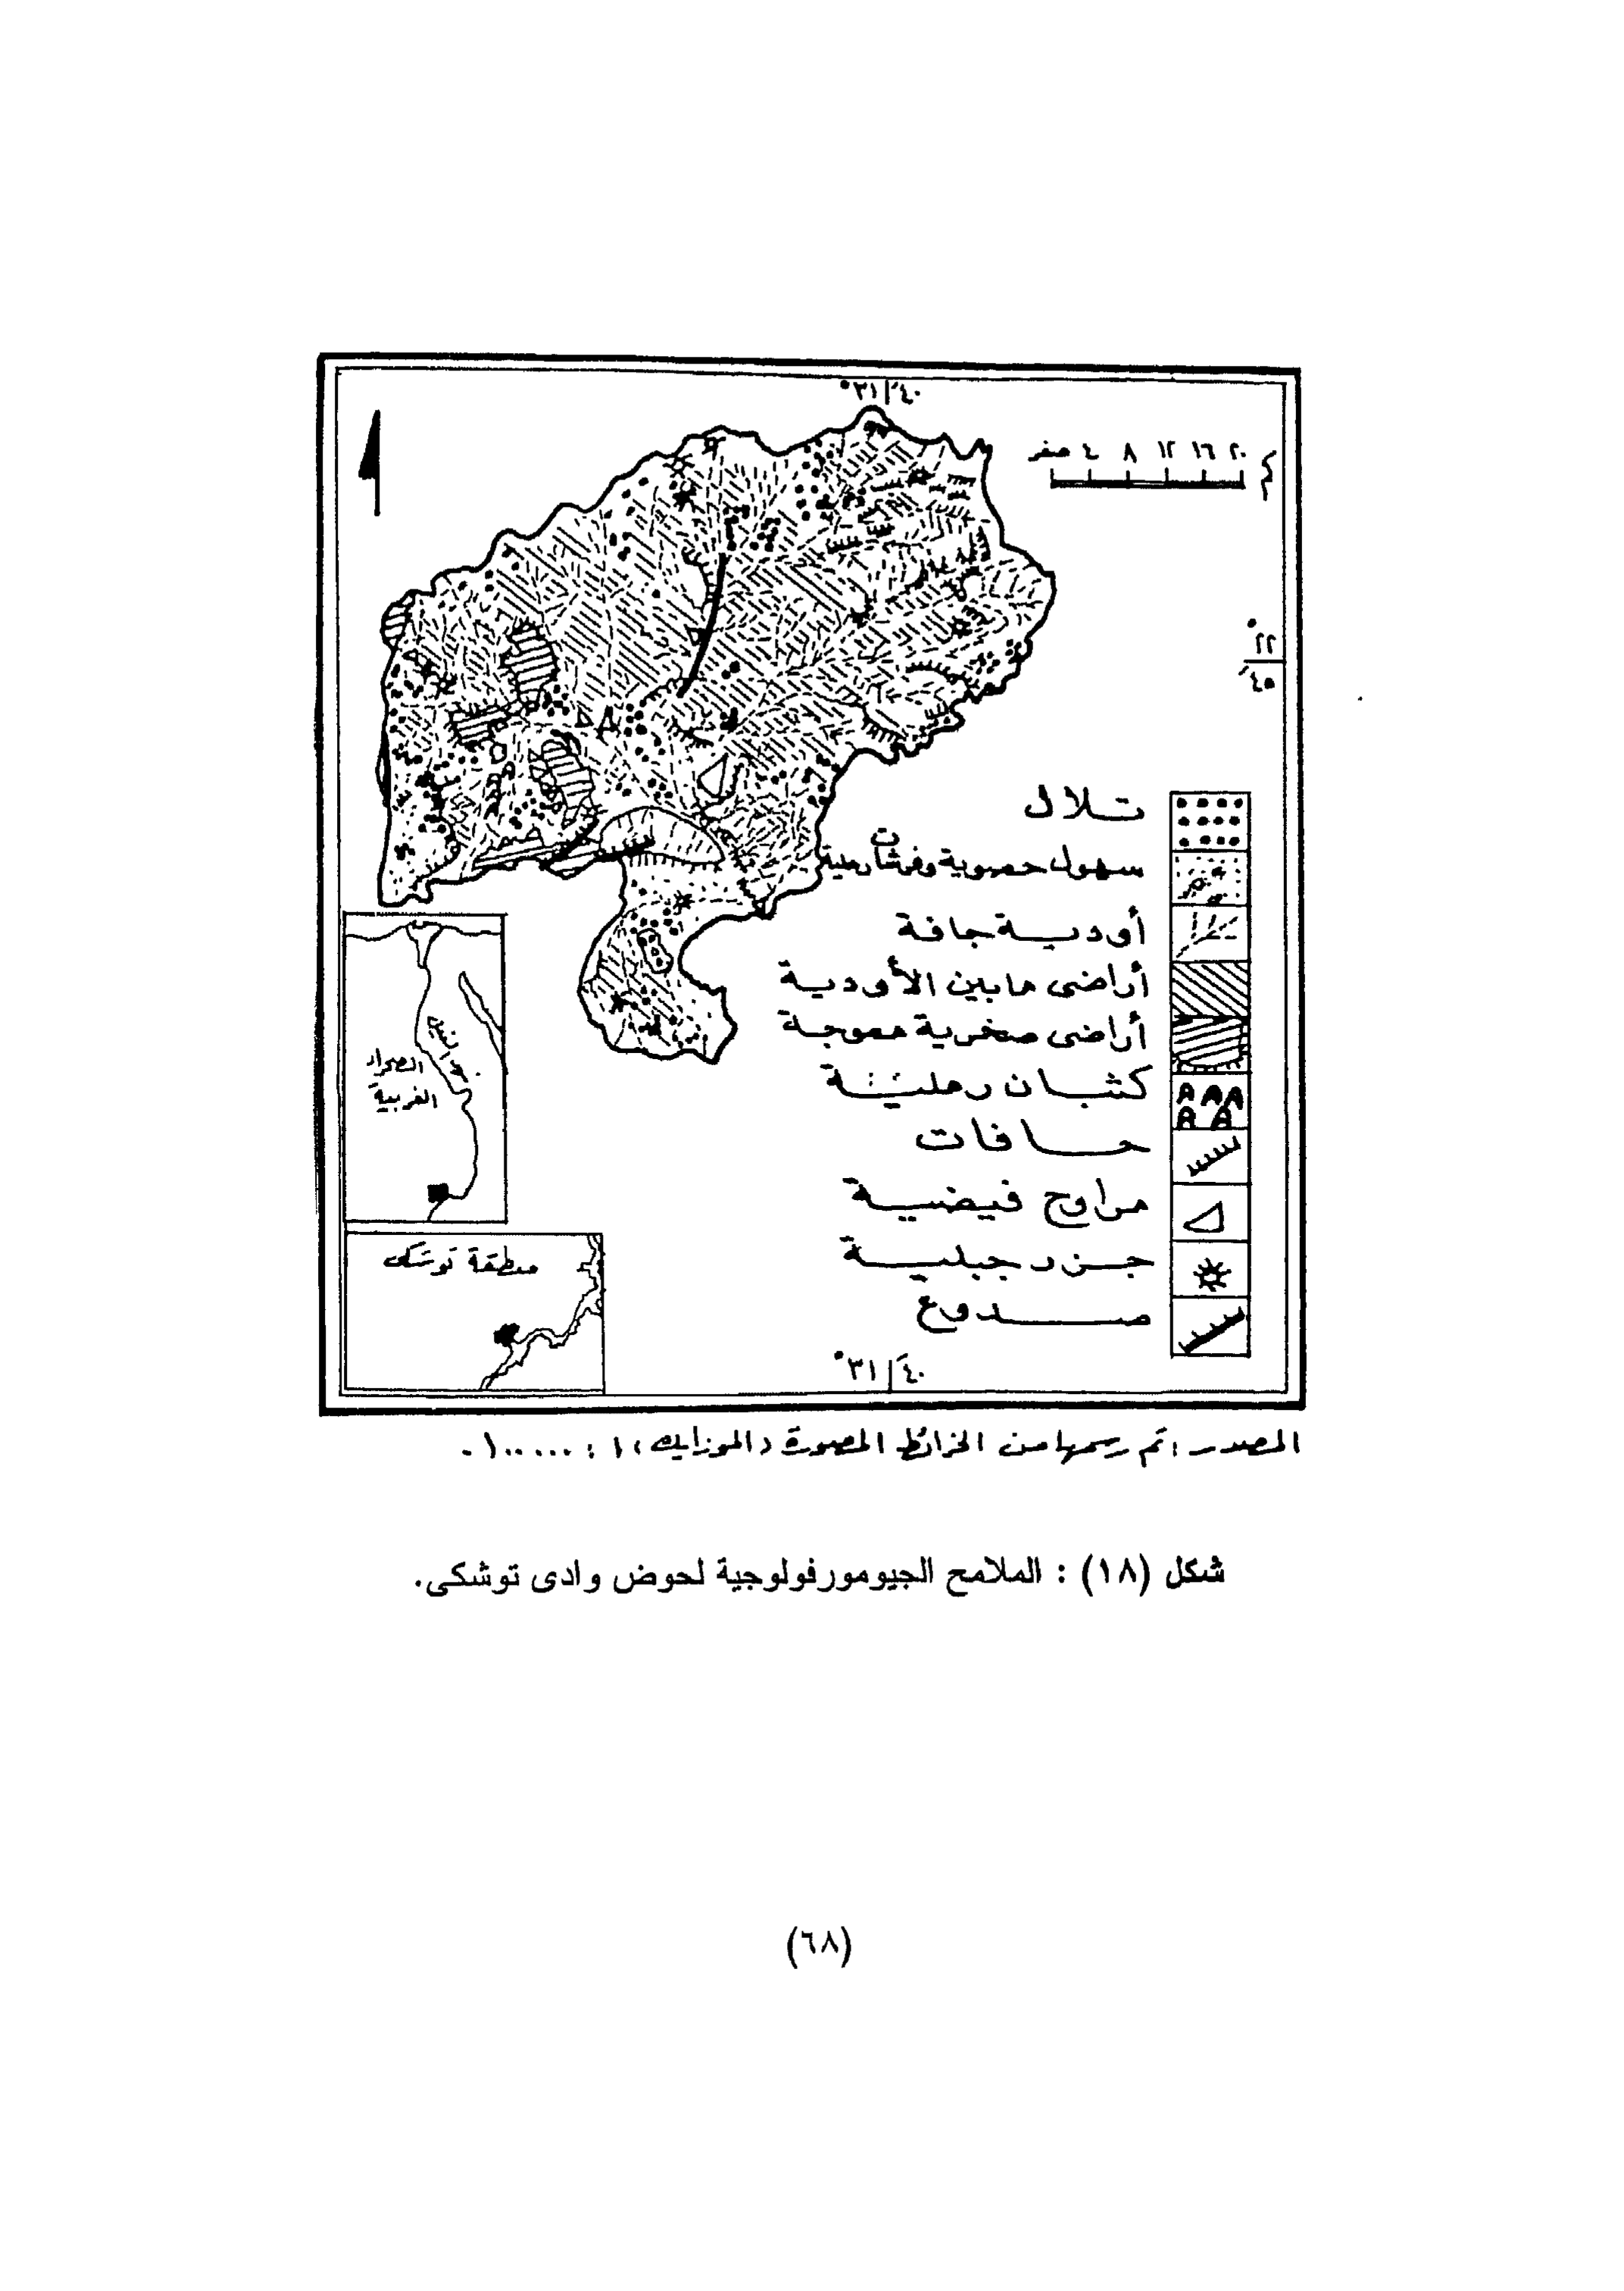 ٣١° ٤٠َ
صفر ٤ ٨ ١٢ ١٦ ٢٠ كم
٢٢°
٤٥َ
تلال
سهول حصوية وفرشات رملية
أودية جافة
أراضى ما بين الأودية
أراضى صخرية مموجة
كثبان رملية
حافات
مراوح فيضية
جزر جبلية
صدوع
نهر النيل
الصحراء
الغربية
منطقة توشكى
٣١° ٤٠َ
المصدر : تم رسمها من الخرائط المصورة (الموزايك) ١ : ١٠٠٠٠٠ .
شكل (١٨) : الملامح الجيومورفولوجية لحوض وادى توشكى.
(٦٨)